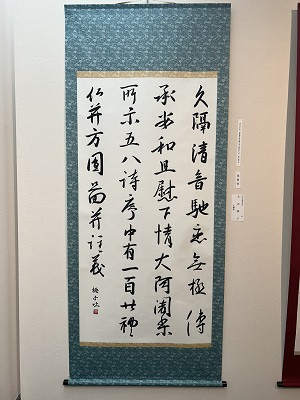 久隔清音馳恋無極傳
承安和且慰下情大阿闍梨
所示五八詩序中有一百廿禮
仏并方圓圖并註義